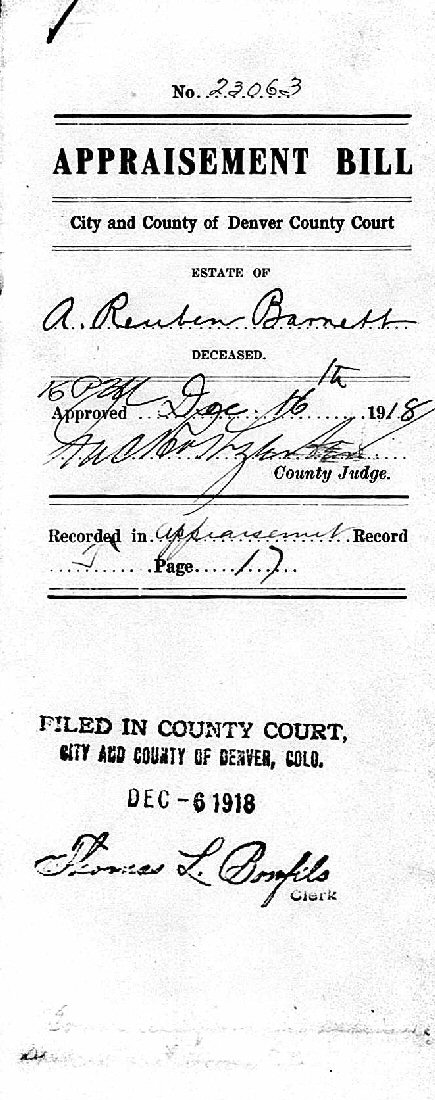 No. 23063
APPRAISEMENT BILL
City and County of Denver County Court
ESTATE OF
A. Reuben Barnett
DECEASED.
Approved Dec 16th 1918
County Judge.
Recorded in Appraisement Record
Page 17
FILED IN COUNTY COURT,
CITY AND COUNTY OF DENVER, COLO.
DEC -6 1918
Thomas L. Bonfils
Clerk